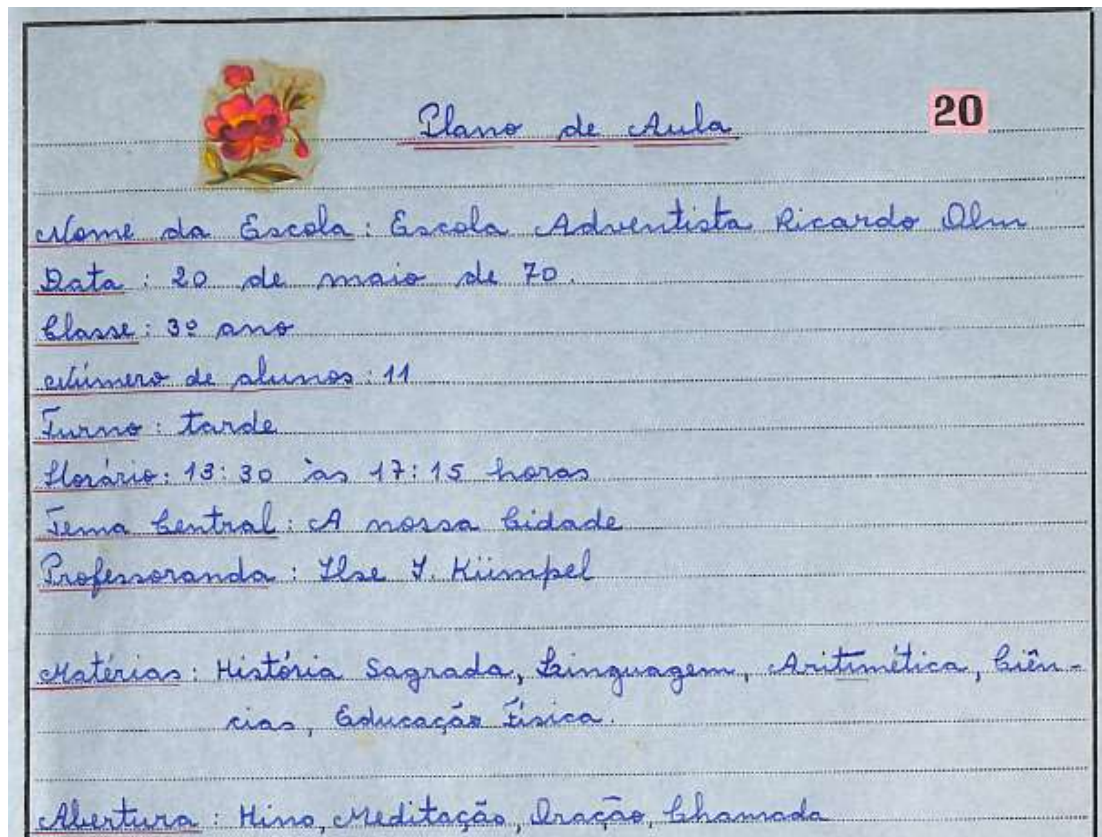 Plano de Aula
20
Nome da Escola: Escola Adventista Ricardo Olm
Data: 20 de maio de 70.
Classe: 3º ano
Número de alunos: 11
Turno: tarde
Horário: 13:30 às 17:15 horas
Tema Central: A nossa Cidade
Professoranda: Ilse I. Kümpel
Matérias: História Sagrada, Linguagem, Aritmética, Ciên-
cias, Educação Física.
Abertura: Hino, Meditação, Oração, Chamada